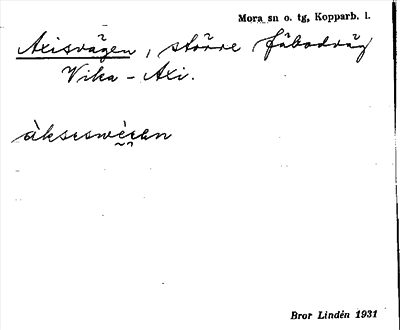 Mora sn o. tg, Kopparb. l.
Axisvägen, större fäbodväg
Vika - Axi.
àksıswè̀ɛan
Bror Lindén 1931